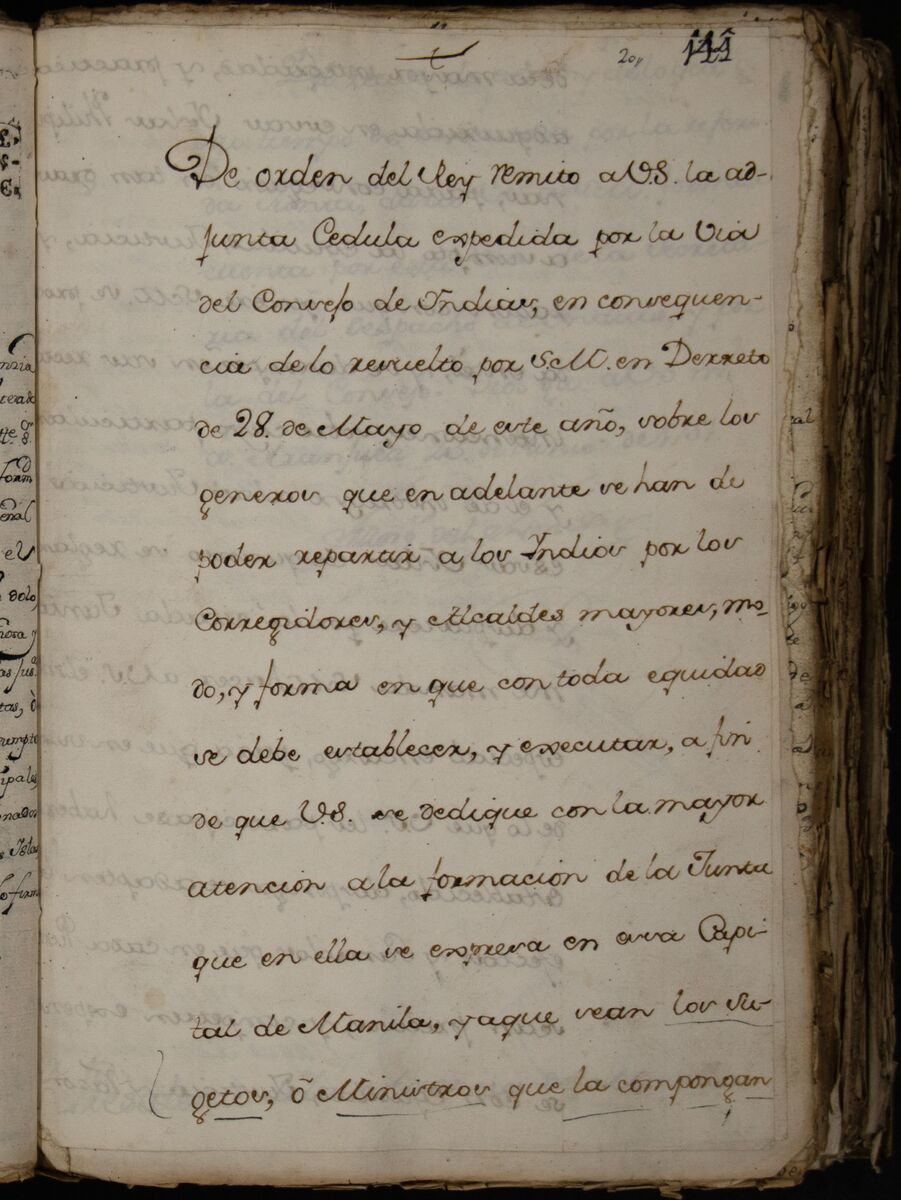 141
De orden del Rey remito a V.S. la ad-
junta Cedula expedida por la Via
del Consejo de Indias, en consequen-
cia de lo resuelto por S.M. en Decreto
de 28. de Mayo de este año, sobre los
generos que en adelante se han de
poder repartir a los Indios por los
Corregidores, y Alcaldes mayores, mo-
do, y forma en que con toda equidad
se debe establecer, y executar, a fin
de que V.S. se dedique con la mayor
atencion a la formacion de la Junta
que en ella se expresa en esa Capi-
tal de Manila, y a que sean los Su-
getos, ò Ministros que la compongan